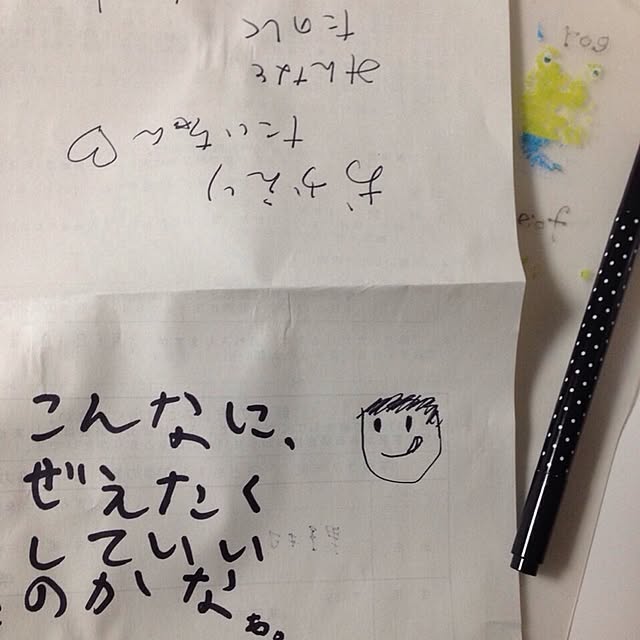 おかえり
たいちゃん♡
みんなと
たのしく
こんなに、
ぜえたく
していい
のかなぁ。